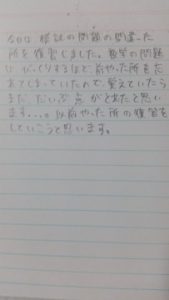 今日は模試の問題の間違った
所を復習しました。数学の問題
は、びっくりするほど前やった所を忘
れてしまっていたので、覚えていたら
まだ、だいぶ点がとれたと思い
ます...。以前やった所の復習を
していこうと思います。